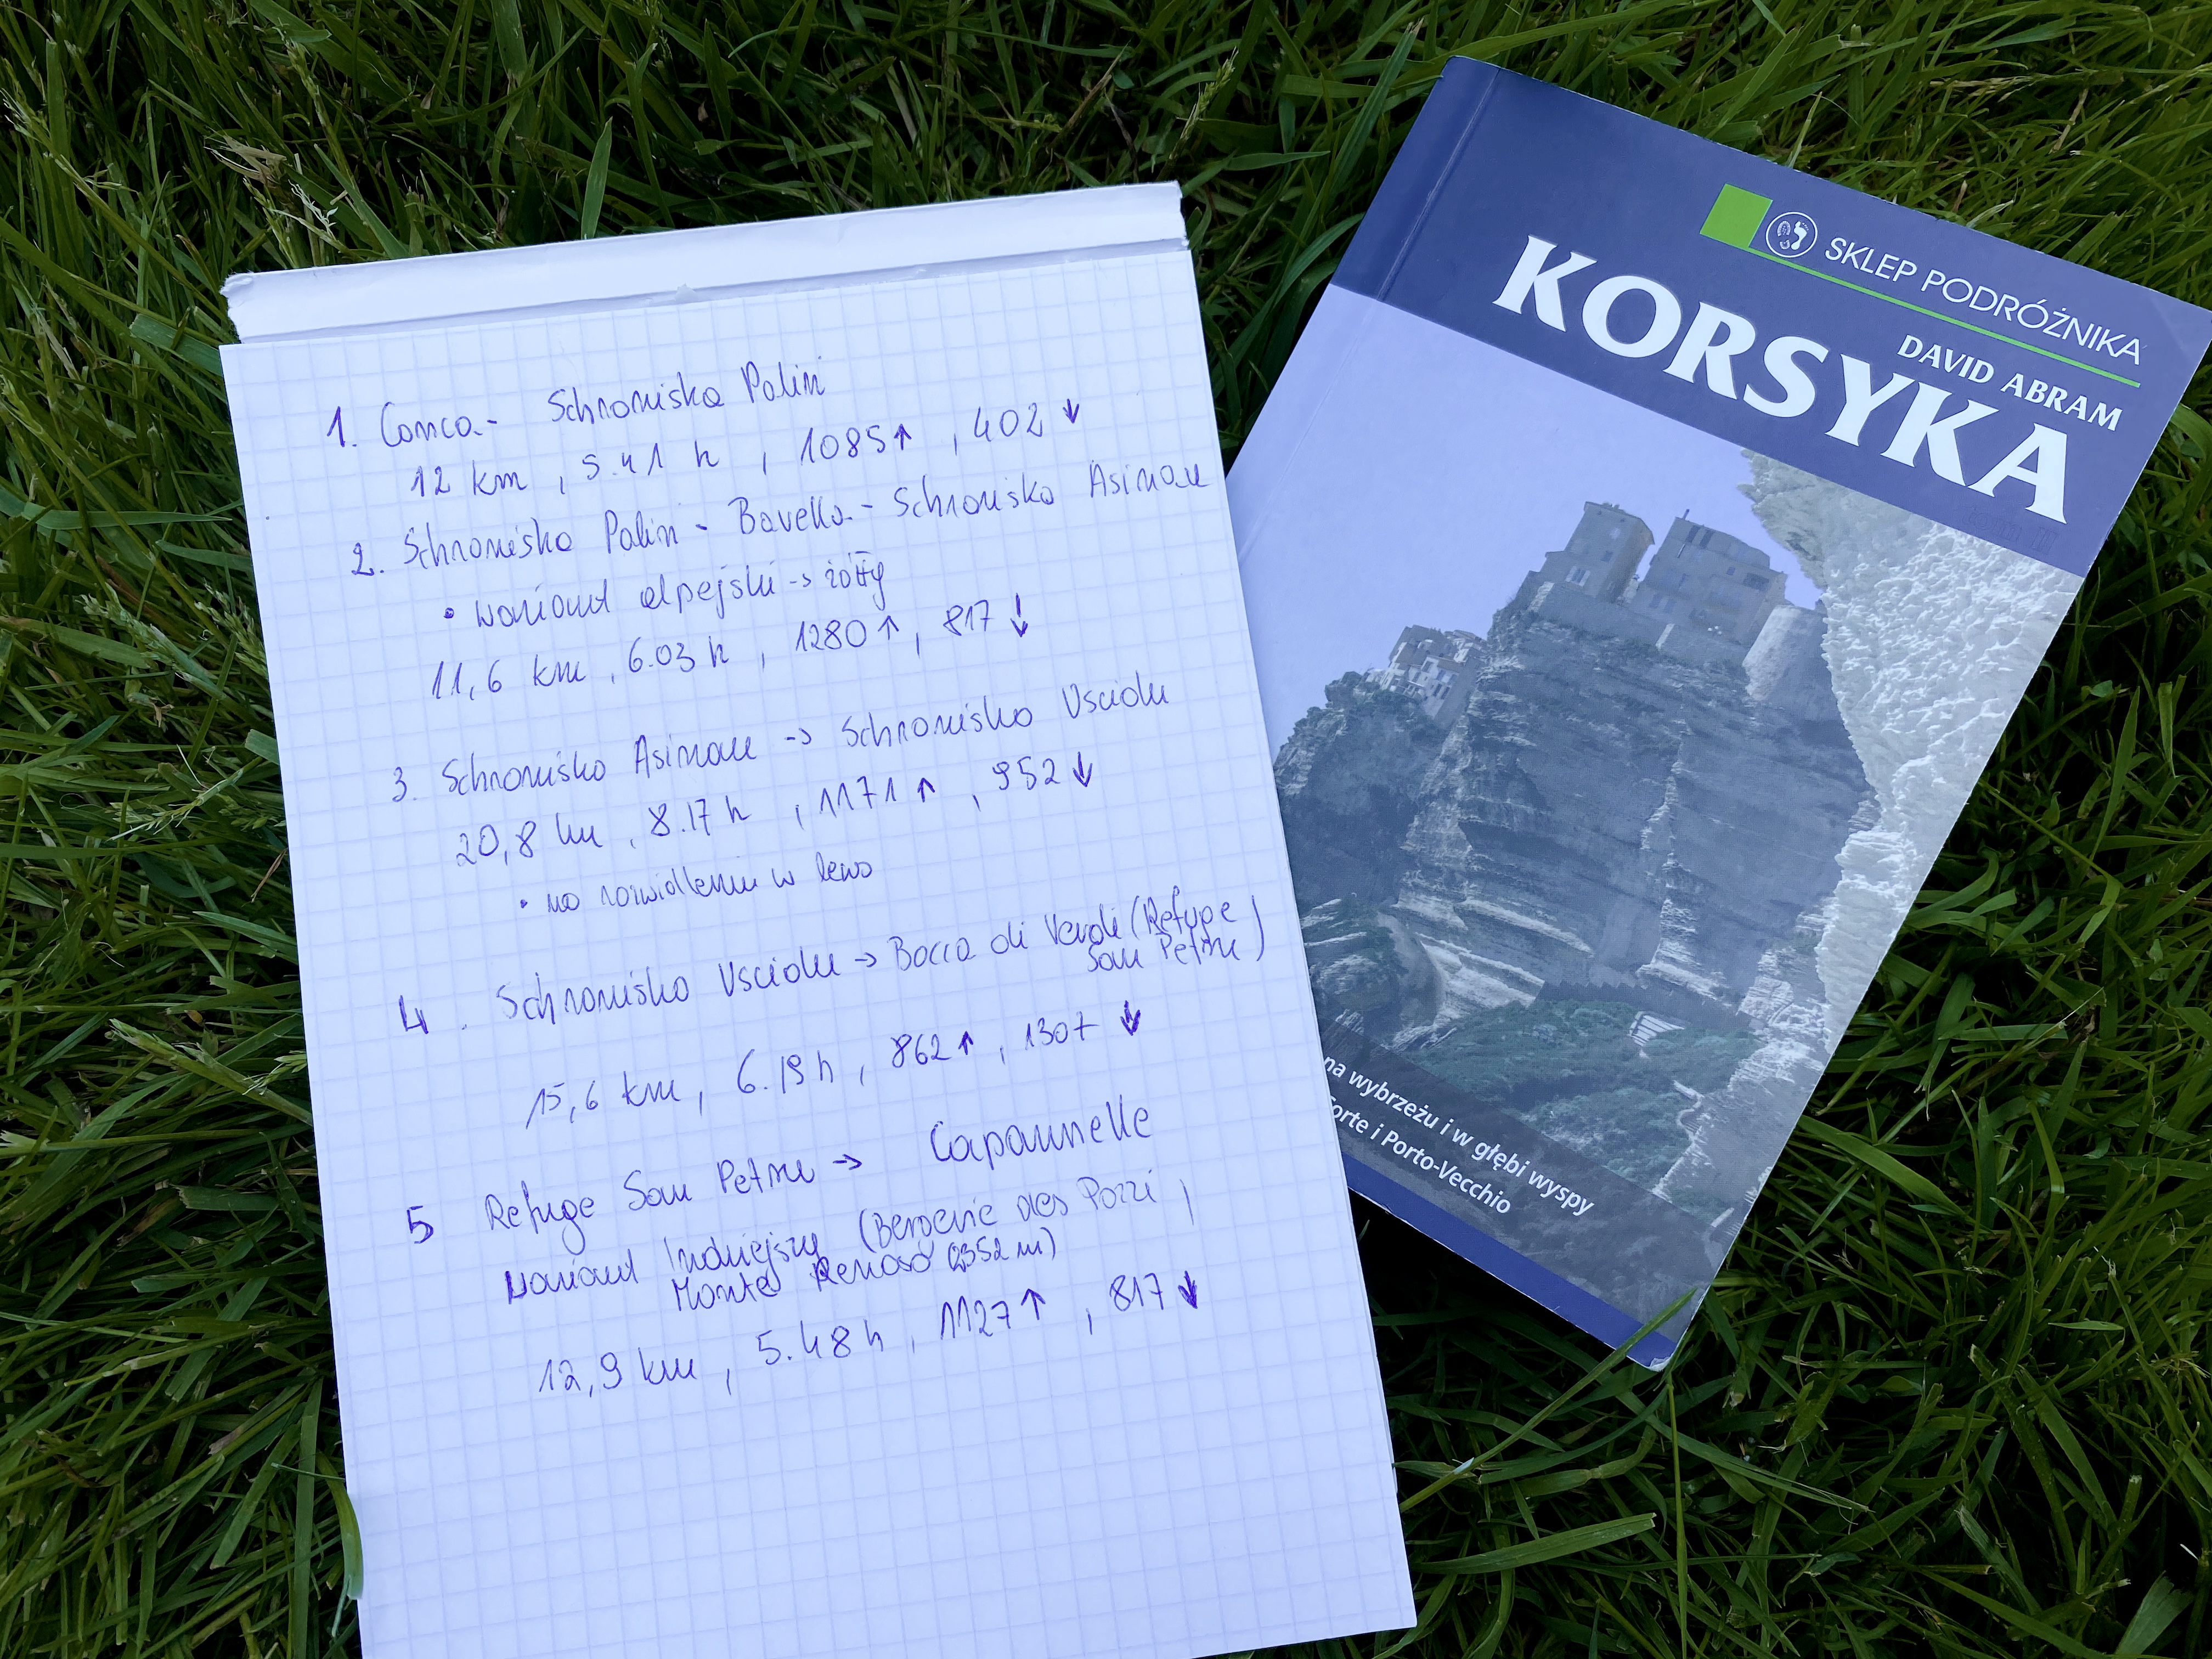 1. Conca - Schronisko Paliri
12 km, 5.41 h, 1085↑, 402↓
2. Schronisko Paliri - Bavella - Schronisko Asinau
• wariant alpejski → żółty
11,6 km, 6.03 h, 1280↑, 817↓
3. Schronisko Asinau → Schronisko Usciolu
20,8 km, 8.17 h, 1171↑, 952↓
• na rozwidleniu w lewo
4. Schronisko Usciolu → Bocca di Verdi (Refuge
San Petru)
15,6 km, 6.19 h, 862↑, 1307↓
5 Refuge San Petru → Capannelle
wariant trudniejszy (Bergerie des Pozzi,
Monte Renoso (2352 m)
12,9 km, 5.48 h, 1127↑, 817↓
SKLEP PODRÓŻNIKA
DAVID ABRAM
KORSYKA
na wybrzeżu i w głębi wyspy
i Porto-Vecchio